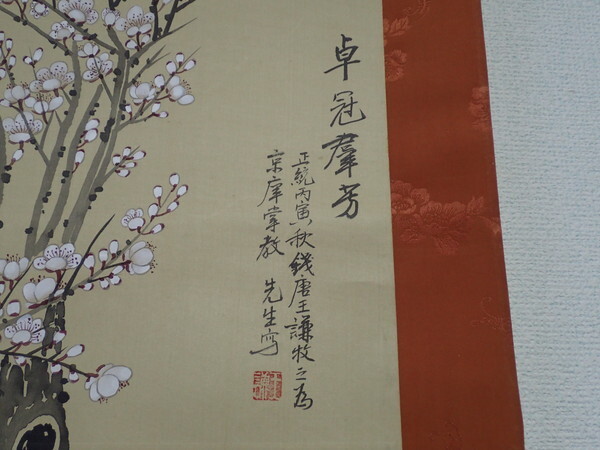 卓冠羣芳
正統丙寅秋錢唐王謙牧之為
京庠掌教 先生寫